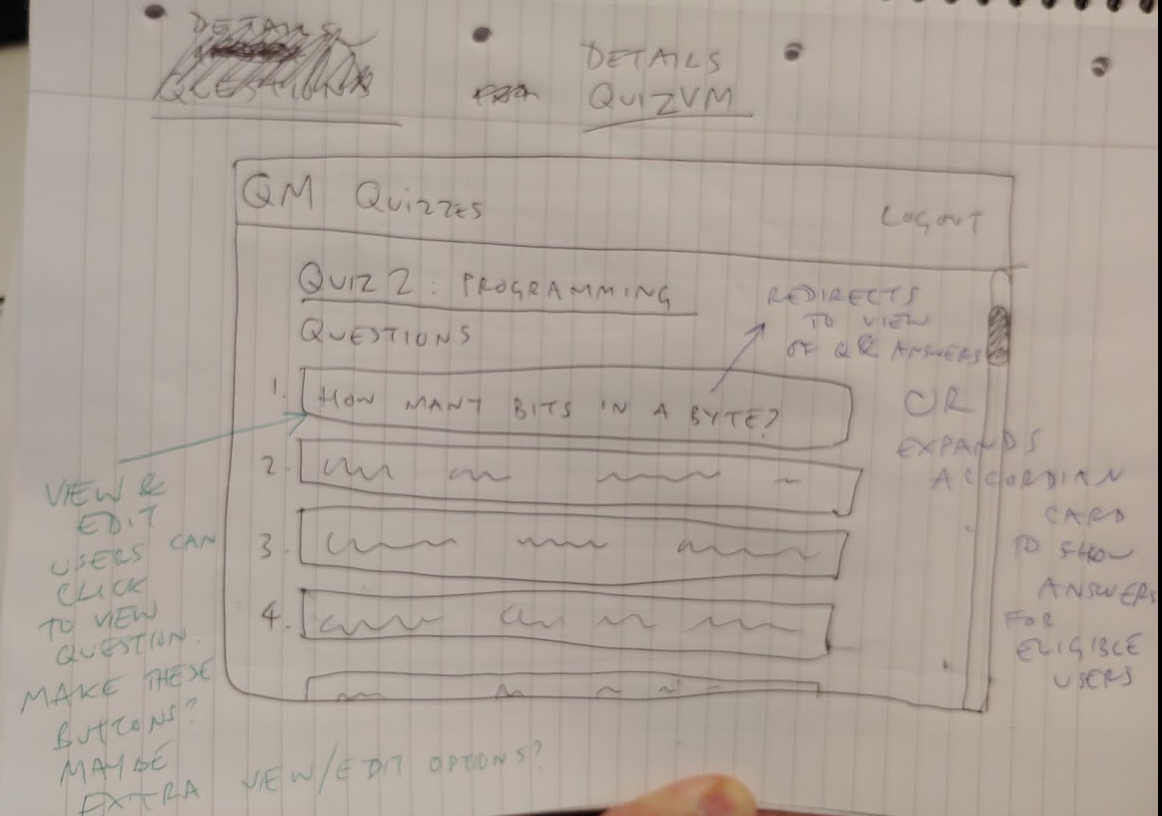 DETAILS
QUESTIONS
DETAILS
QUIZVM
QM QUIZZES
LOGOUT
QUIZ 2: PROGRAMMING
QUESTIONS
1. HOW MANY BITS IN A BYTE?
2.
3.
4.
REDIRECTS
TO VIEW
OF Q & ANSWERS
OR
EXPANDS
ACCORDIAN
CARD
TO SHOW
ANSWERS
FOR
ELIGIBLE
USERS
VIEW &
EDIT
USERS CAN
CLICK
TO VIEW
QUESTION.
MAKE THESE
BUTTONS?
MAYBE
EXTRA VIEW/EDIT OPTIONS?